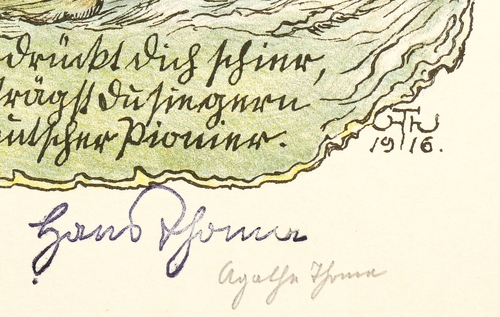 drückt dich schier,
trägst du sie gern
eutscher Pionier.
HTh
1916.
Hans Thoma
Agathe Thoma